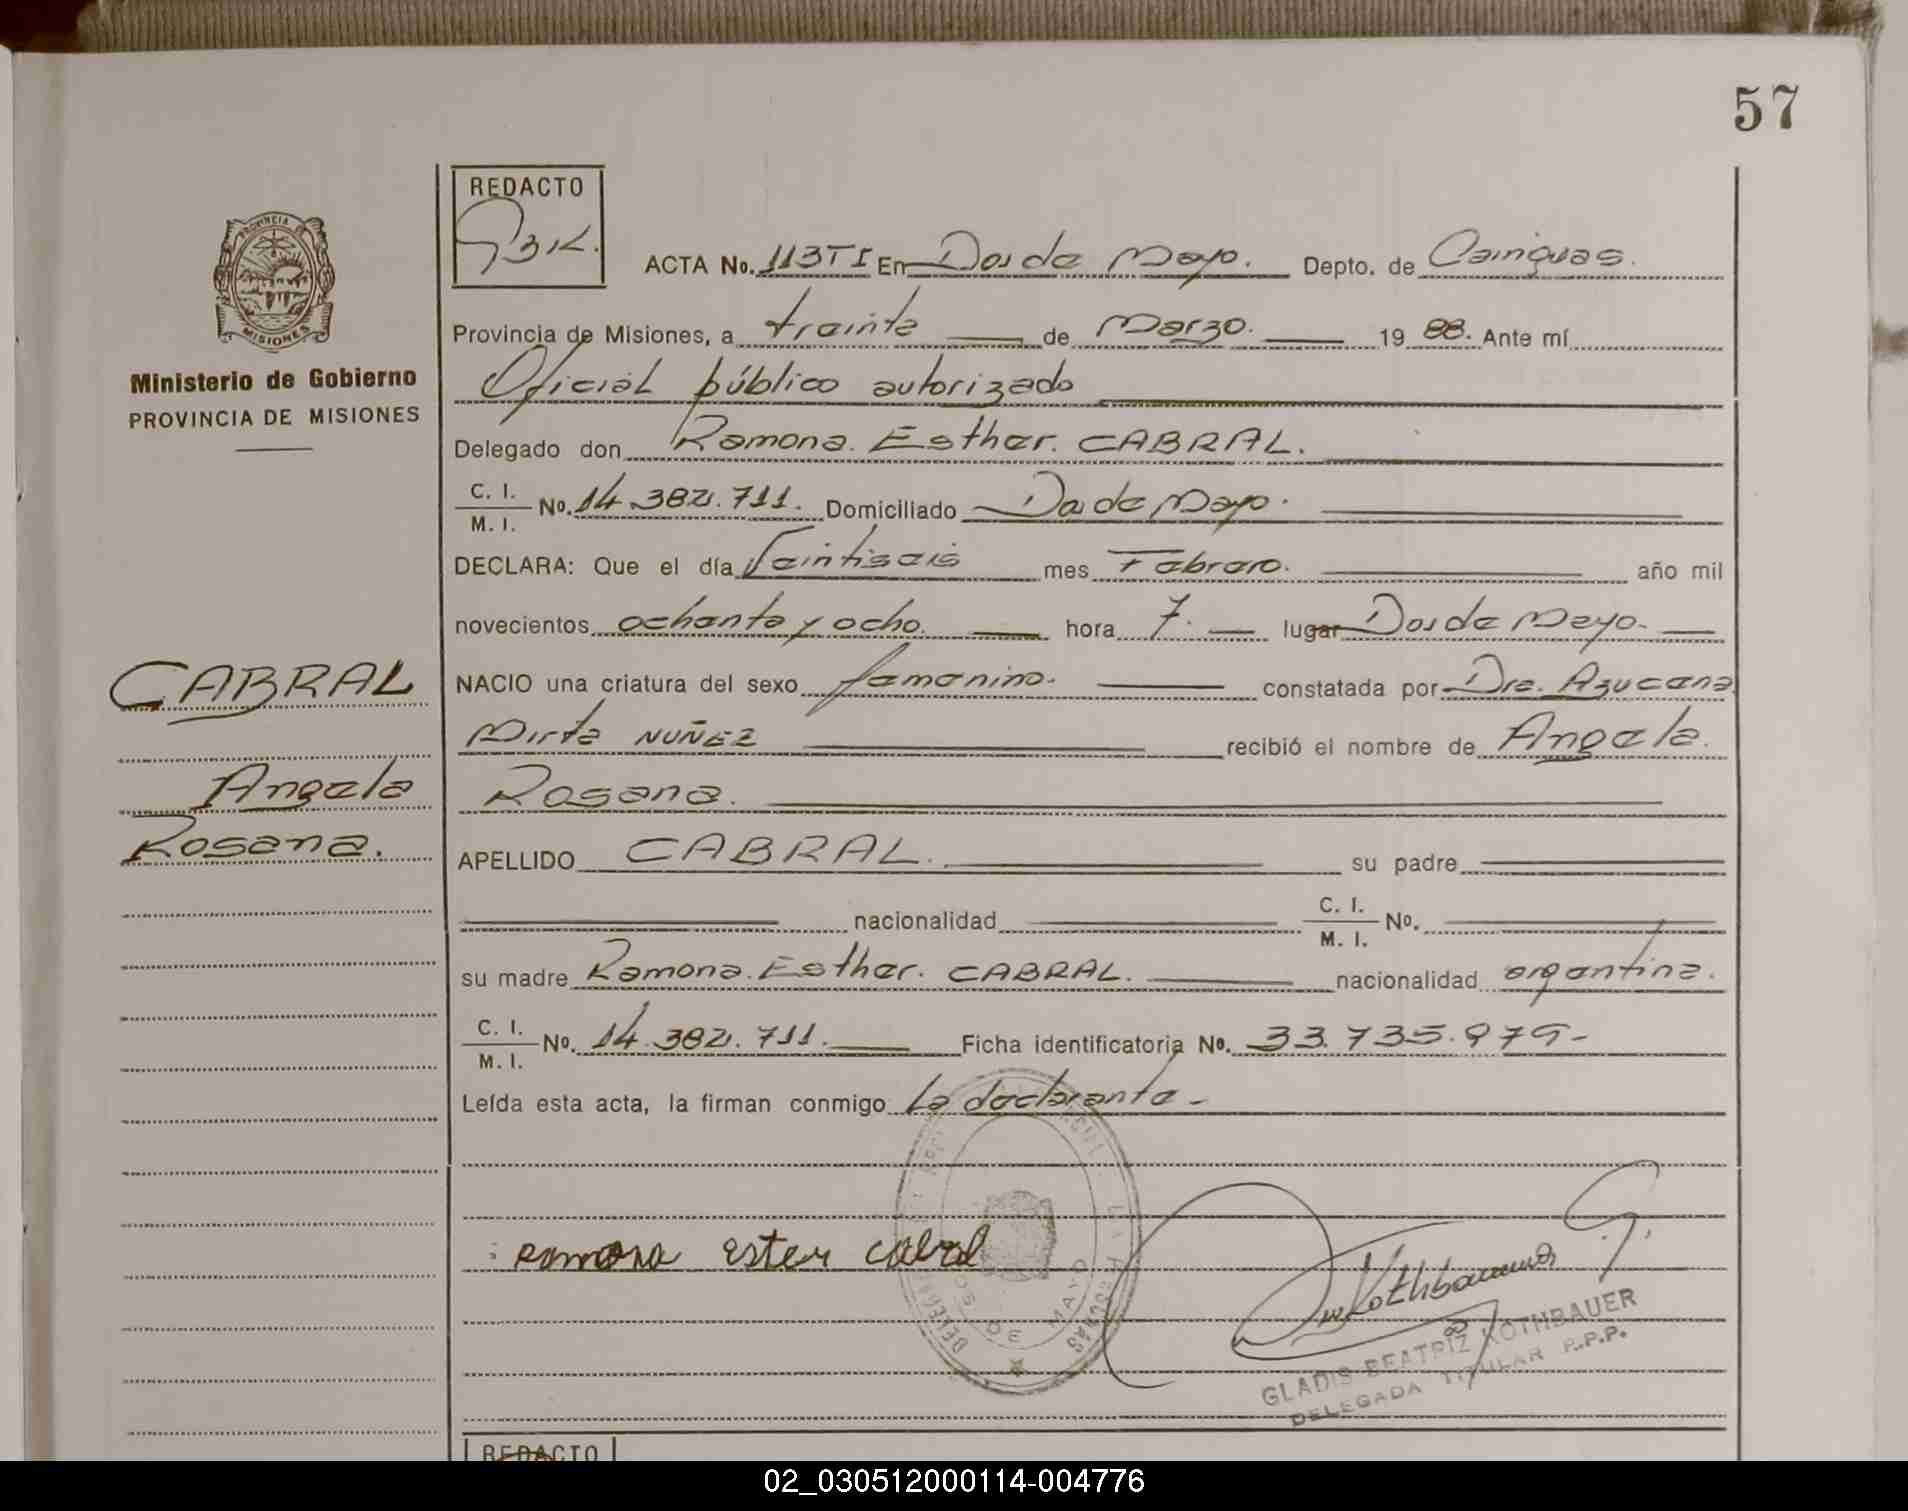 57
REDACTO
GBK.
ACTA No. 113TI En Dos de Mayo. Depto. de Cainguas.
PROVINCIA DE
MISIONES
Provincia de Misiones, a treinta de Marzo. 19 88. Ante mí
Ministerio de Gobierno
PROVINCIA DE MISIONES
Oficial público autorizado
Delegado don Ramona Esther CABRAL.
C. I. / M. I. No. 14.382.711. Domiciliado Dos de Mayo.
DECLARA: Que el día Veintiseis mes Febrero. año mil
novecientos ochenta y ocho. hora 7. lugar Dos de Mayo.
CABRAL
NACIO una criatura del sexo femenino. constatada por Dra. Azucena
Mirta NUÑEZ recibió el nombre de Angela
Angela
Rosana.
Rosana.
APELLIDO CABRAL. su padre
nacionalidad C. I. / M. I. No.
su madre Ramona Esther. CABRAL. nacionalidad argentina.
C. I. / M. I. No. 14.382.711. Ficha identificatoria No. 33.735.979-
Leída esta acta, la firman conmigo La declarante-
Ramona Ester Cabral
DOS DE MAYO
GLADIS BEATRIZ KOTHBAUER
DELEGADA TITULAR R.P.P.
REDACTO
02_030512000114-004776